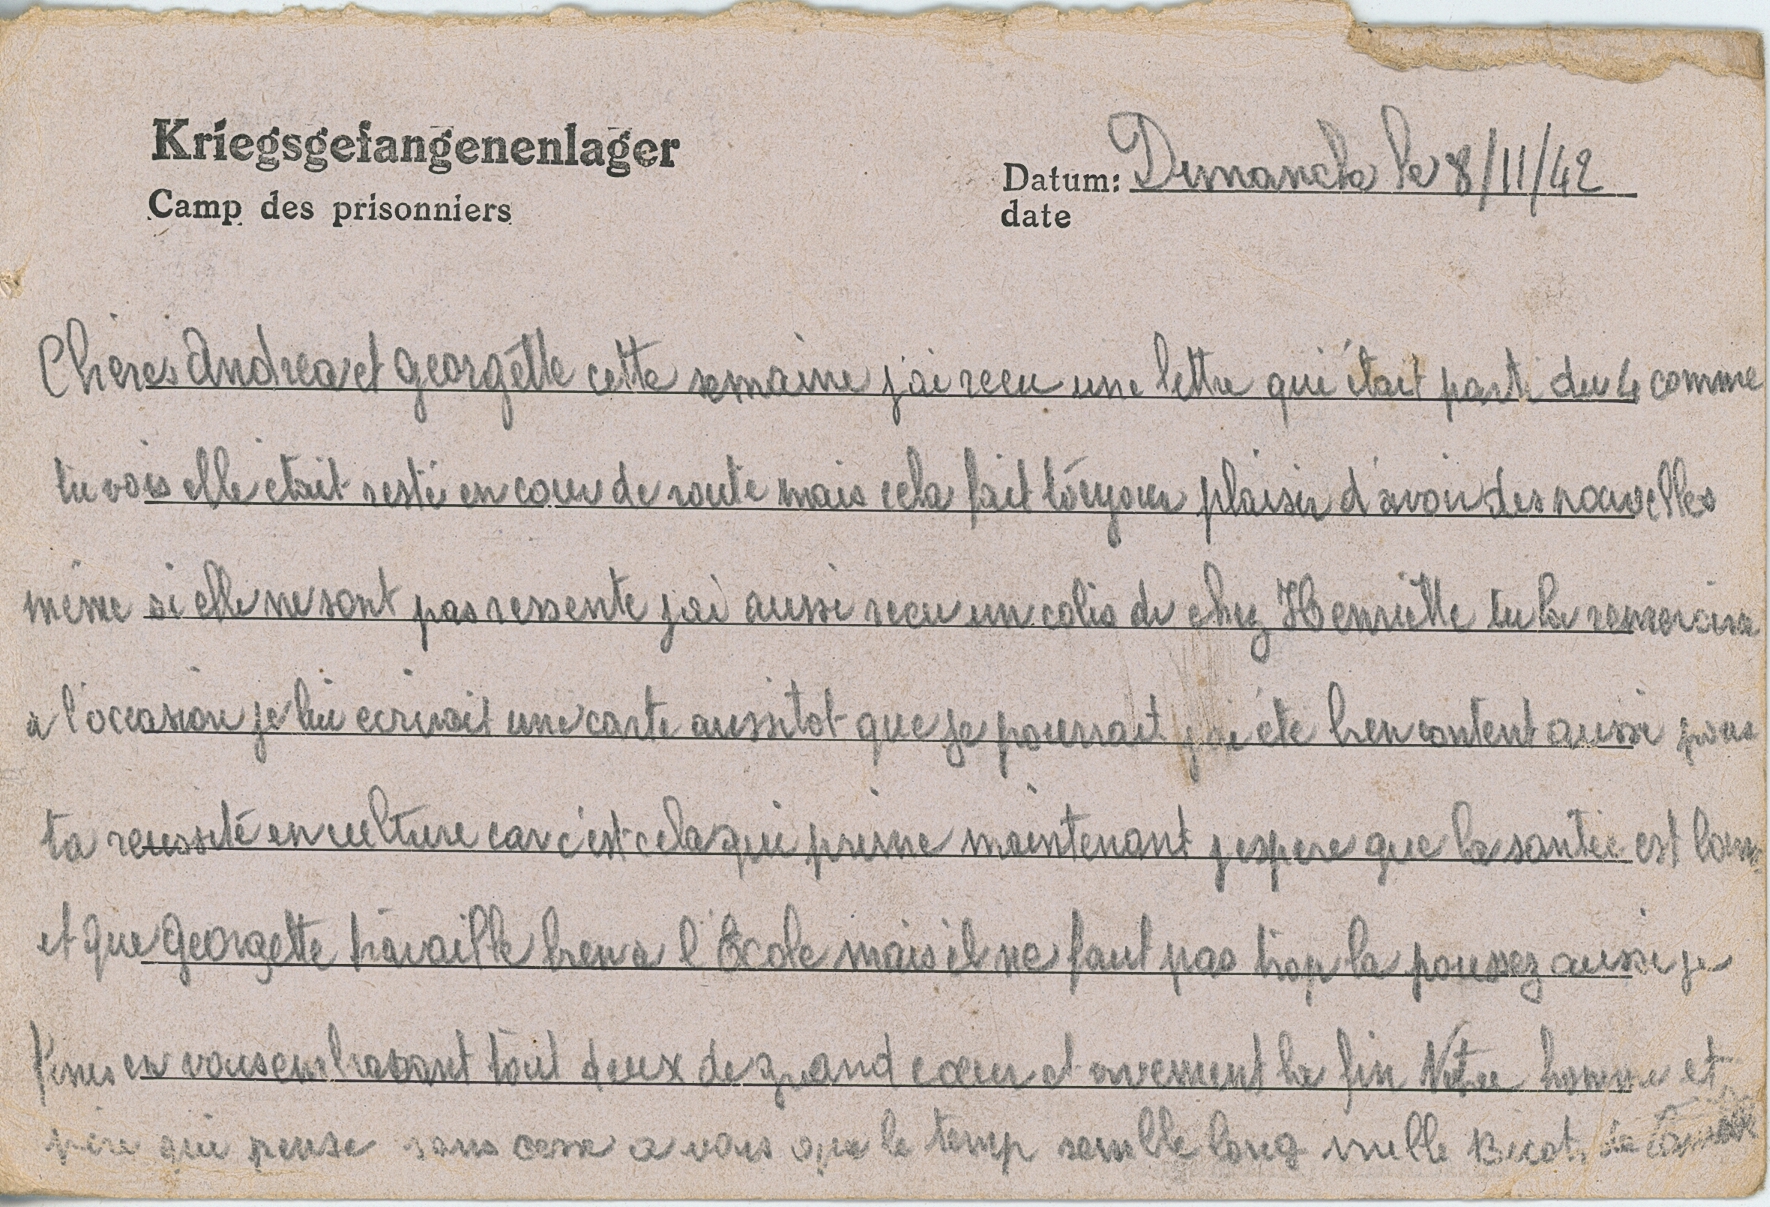 Kriegsgefangenenlager
Camp des prisonniers
Datum: Dimanche le 8/11/42
date
Chères Andrea et Georgette cette semaine j'ai reçu une lettre qui était parti du 4 comme
tu vois elle était resté en cour de route mais cela fait toujour plaisir d'avoir des nouvelles
même si elle ne sont pas ressente j'ai aussi recu un colis de chez Henriette tu la remercira
a l'occasion je lui ecrirait une carte aussitot que je pourrait j'ai été bien content aussi pour
ta reussité en culture car c'est cela qui prime maintenant j'espere que la santée est bonne
et que Georgette travaille bien a l'École mais il ne faut pas trop la poussez aussi je
finis en vous embrasant tout deux de grand cœur et vivement la fin Votre homme et
père qui pense sans cesse a vous que le temp semble long mille Becots de